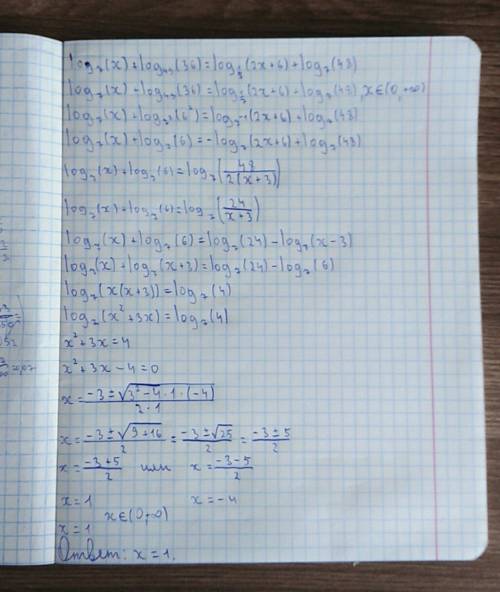 log₇(x)+log₄₉(36)=log_{1/7}(2x+6)+log₇(48)
log₇(x)+log₄₉(36)=log_{1/7}(2x+6)+log₇(48), x∈(0,+∞)
log₇(x)+log_{7²}(6²)=log_{7⁻¹}(2x+6)+log₇(48)
log₇(x)+log₇(6)=-log₇(2x+6)+log₇(48)
log₇(x)+log₇(6)=log₇(48/(2(x+3)))
log₇(x)+log₇(6)=log₇(24/(x+3))
log₇(x)+log₇(6)=log₇(24)-log₇(x-3)
log₇(x)+log₇(x+3)=log₇(24)-log₇(6)
log₇(x(x+3))=log₇(4)
log₇(x²+3x)=log₇(4)
x²+3x=4
x²+3x-4=0
x=(-3±√(3²-4·1·(-4)))/(2·1)
x=(-3±√(9+16))/2=(-3±√25)/2=(-3±5)/2
x=(-3+5)/2 или x=(-3-5)/2
x=1 x=-4
x∈(0,∞)
x=1
Ответ: x=1.